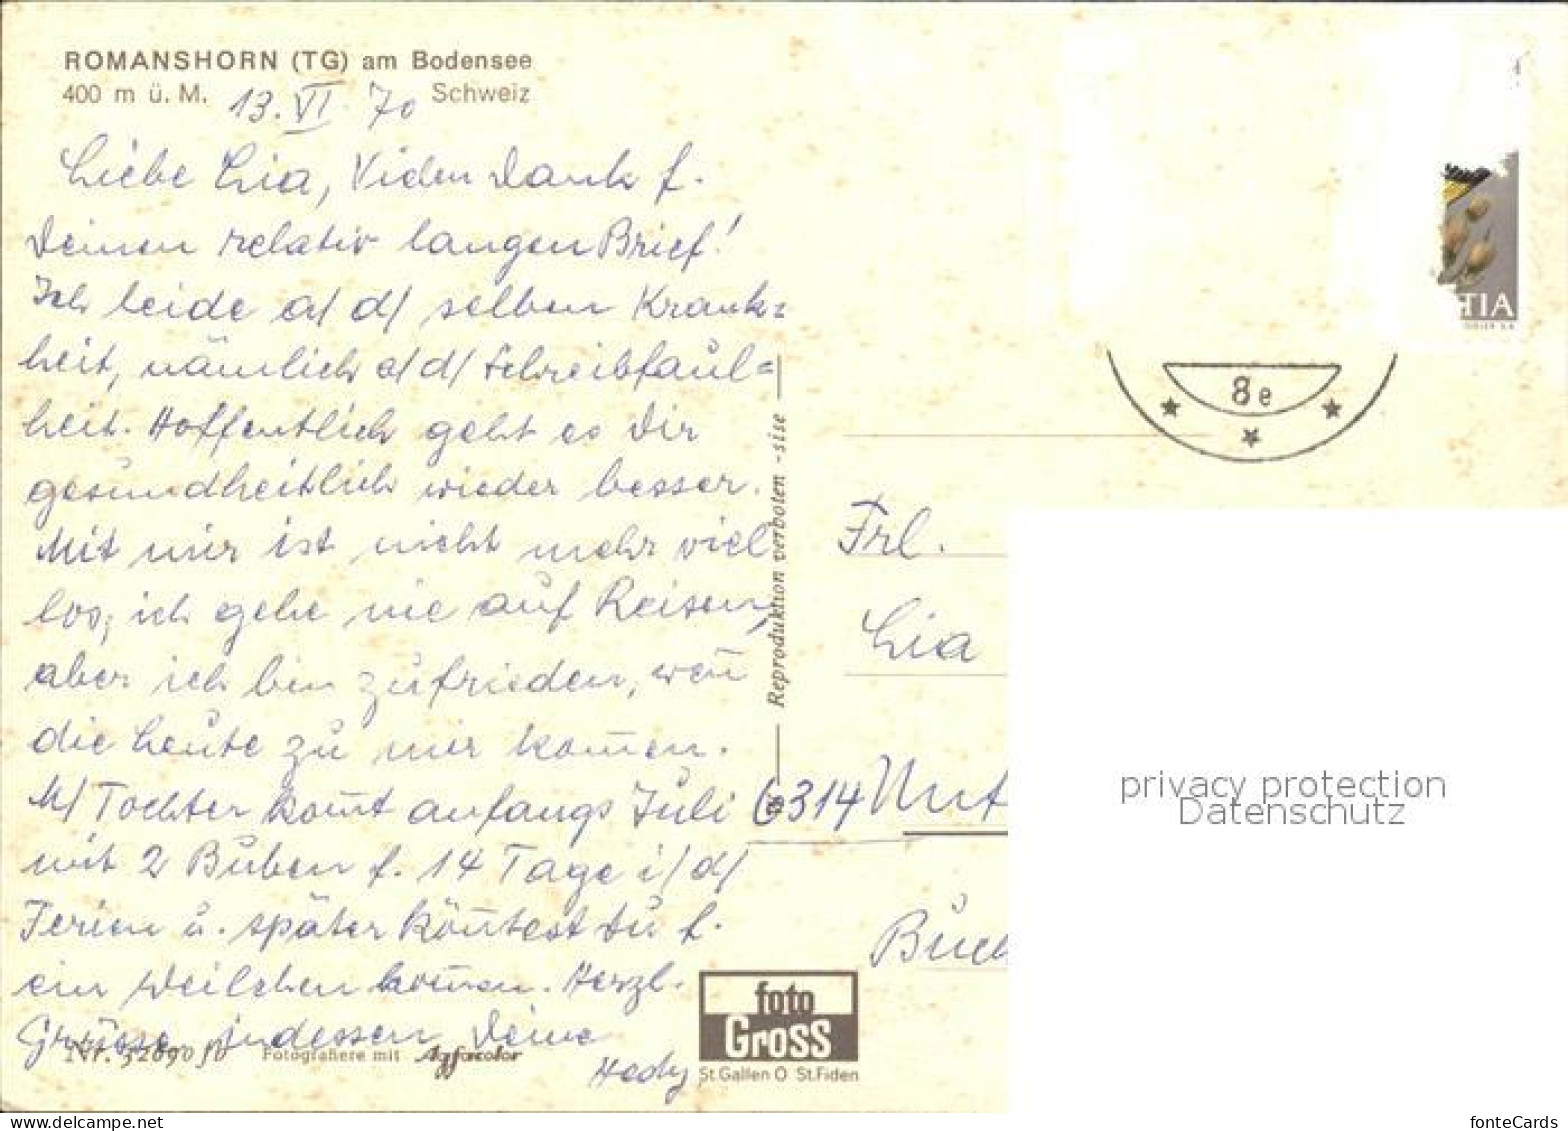 ROMANSHORN (TG) am Bodensee
400 m ü. M. Schweiz
13. VI 70
Liebe Lia, Vielen Dank f.
Deinen relativ langen Brief!
Ich leide a/ d/ selben Krank=
heit, nämlich a/ d/ Schreibfaul=
heit. Hoffentlich geht es Dir
gesundheitlich wieder besser.
Mit mir ist nicht mehr viel
los, ich gehe nie auf Reisen,
aber ich bin zufrieden, wen̄
die Leute zu mir kom̄en.
M/ Tochter kom̄t anfangs Juli
mit 2 Buben f. 14 Tage i/ d/
Ferien u. später kön̄test Du f.
ein Weilchen kom̄en. Herzl.
Grüsse indessen Deine
Hedy
Nr.
Fotografiere mit Agfacolor
Reproduktion verboten - sise
foto
Gross
St.Gallen O St.Fiden
TIA
8e
Frl.
Lia
6314 Unt
Buch
privacy protection
Datenschutz
delcampe.net
fonteCards